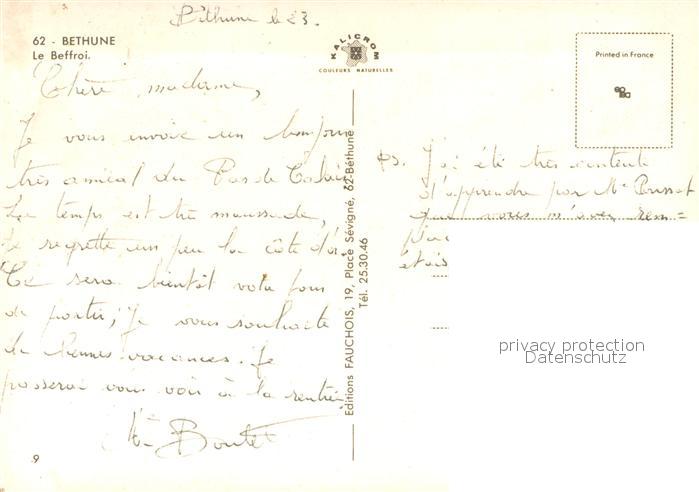 Béthune le 23.
62 - BETHUNE
Le Beffroi.
KALICROM
COULEURS NATURELLES
Printed in France
Chère madame,
Je vous envoie un bonjour
très amical du Pas de Calais
Le temps est très maussade,
Je regrette un peu la côte d'or.
Ce sera bientôt votre tour
de partir; Je vous souhaite
de bonnes vacances. Je
passerai vous voir à la rentrée
Boutet
9
Editions FAUCHOIS, 19, Place Sévigné, 62-Béthune
Tél. 25.30.46
PS. J'ai été très contente
d'apprendre par Me
que vous m'avez rem=
étais
privacy protection
Datenschutz